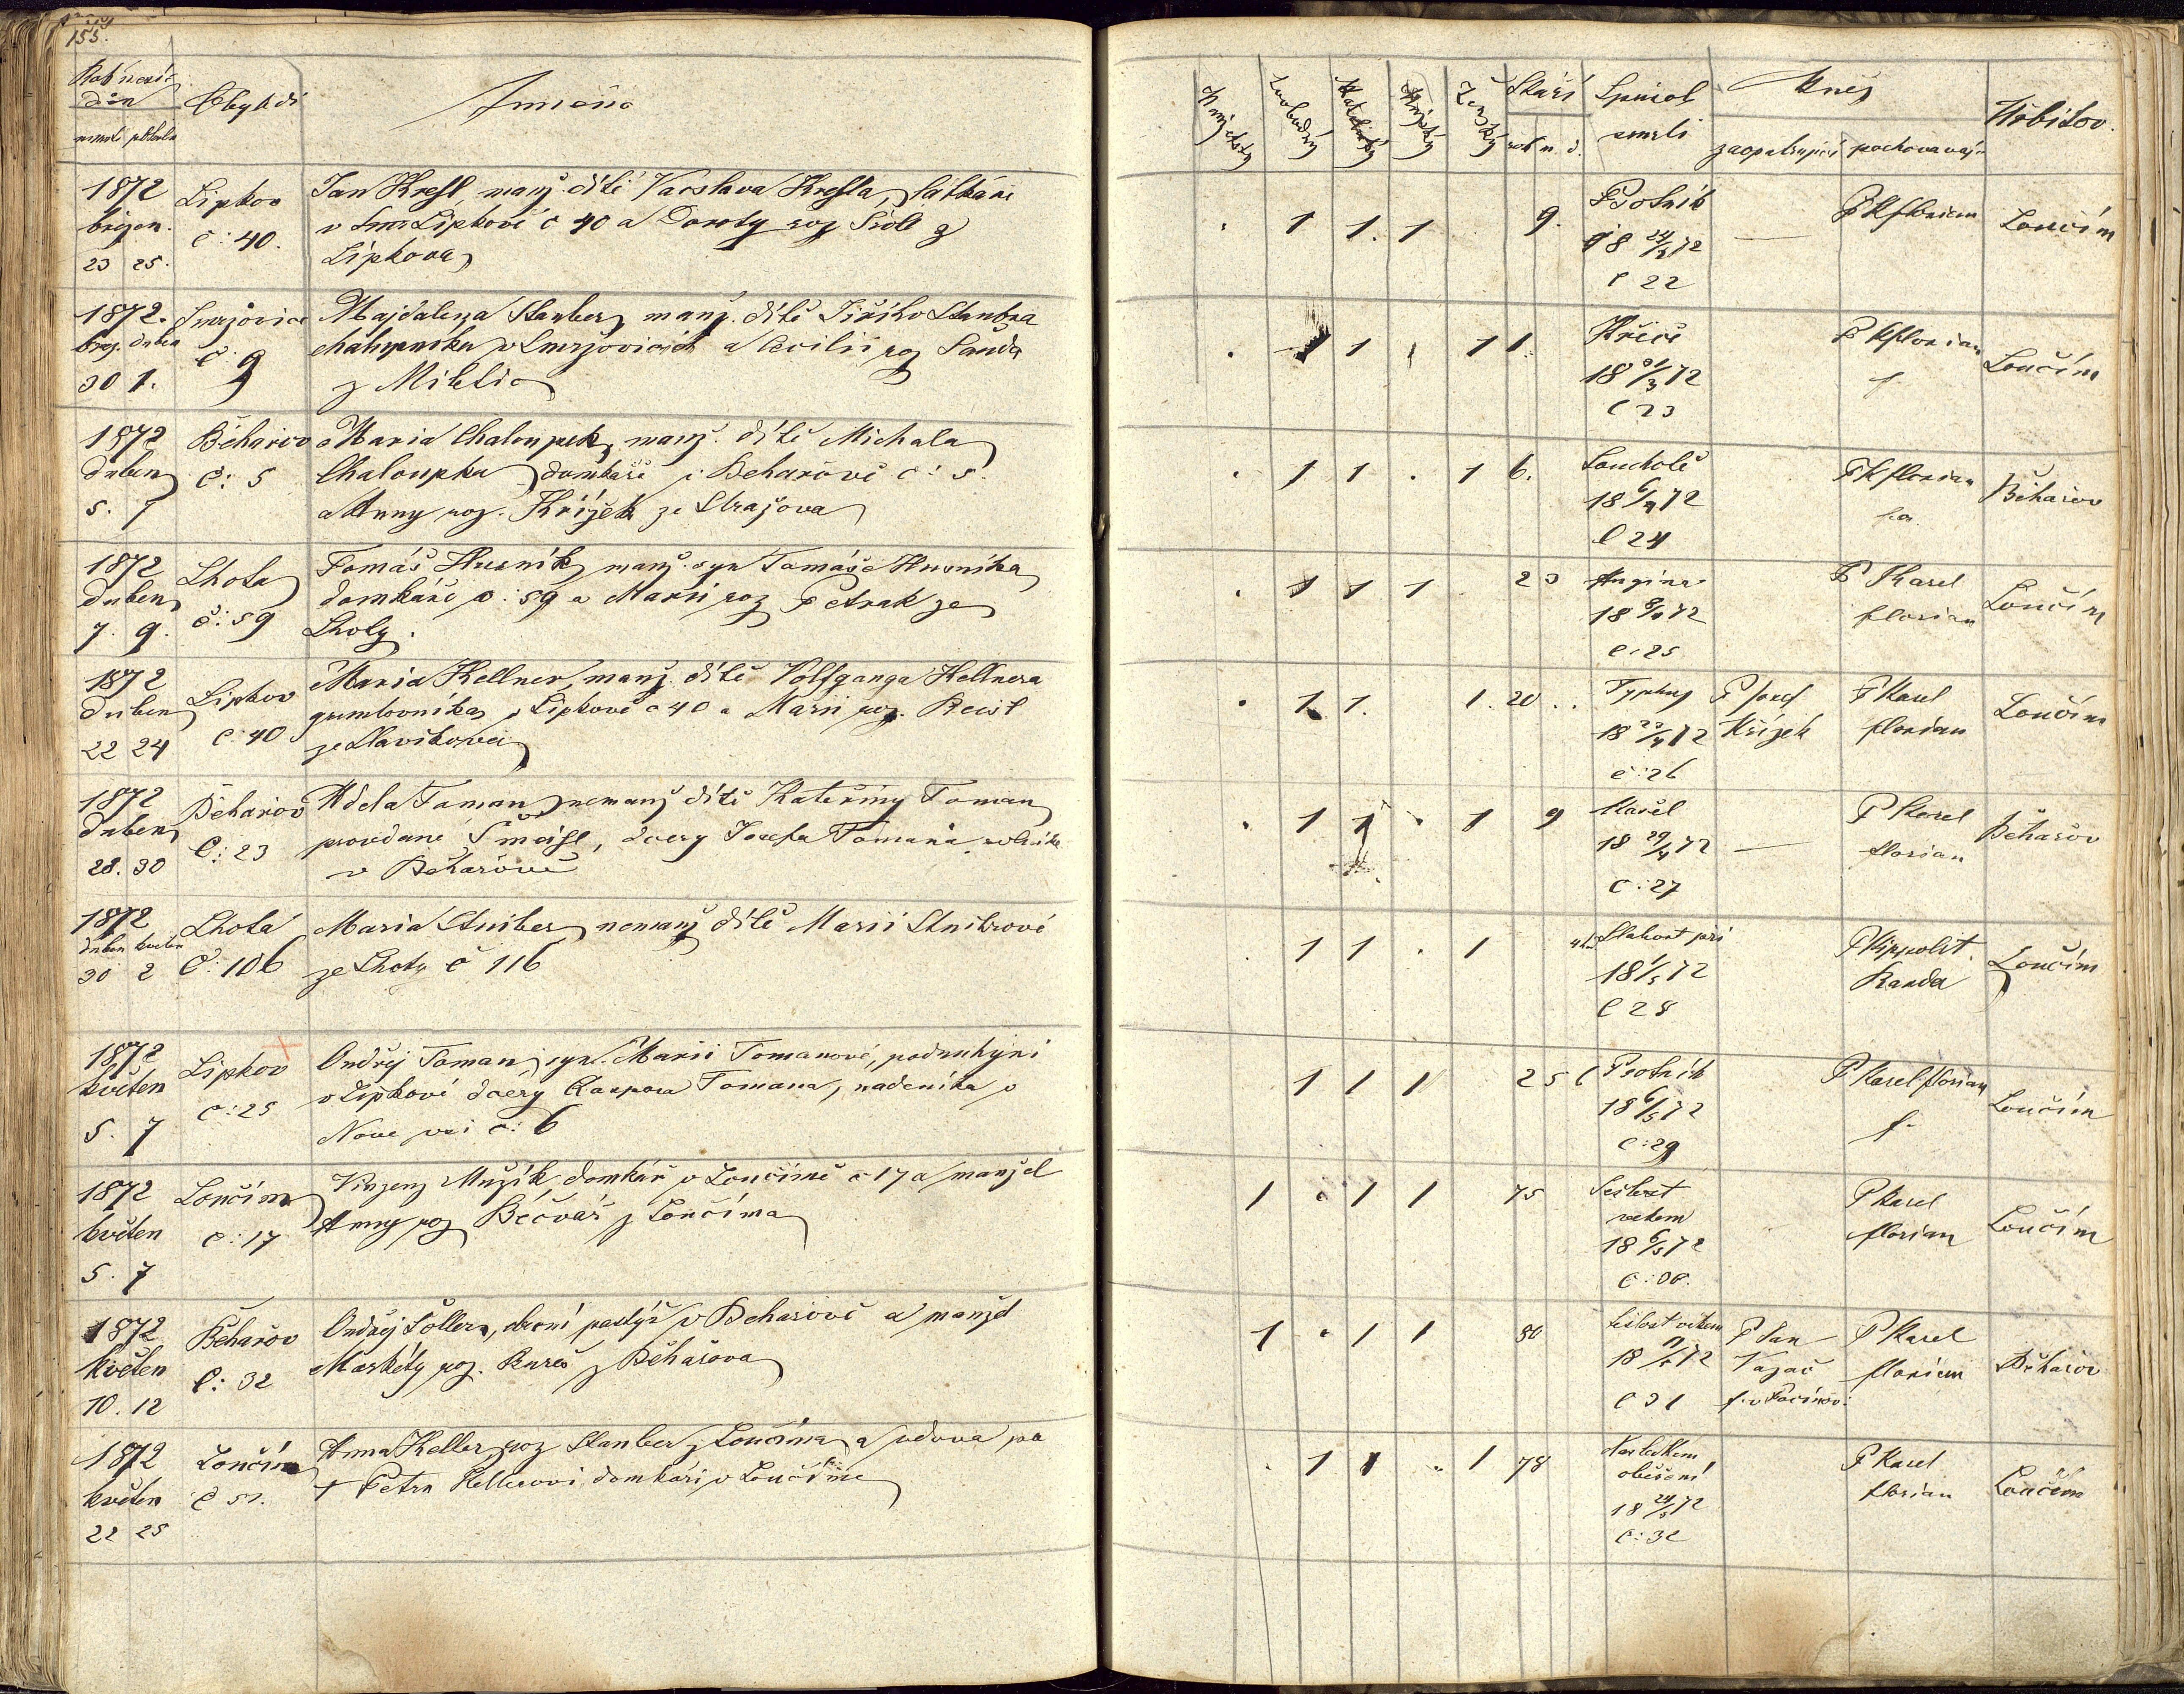 155.
Rok měsíc
den
umrtí pohřbu
Obydlí
Jméno
1872
březen
23 25.
Lipkov
č: 40.
Jan Kresl, manž. dítě Václava Kresla,
v Lipkově č 40 a Doroty roz
Lipkova
1872.
břez. duben
30 1.
Smržovice
č 9
Majdalena Stauber, manž. dítě Jiřího Staubra
chalupníka v Smržovicích a Cecilii roz Sauda
z Miletic
1872
duben
5. 7
Běhařov
č: 5
Maria Chaloupek, manž. dítě Michala
Chaloupka domkáře v Behařově č: 5.
a Anny roz. Křížek ze Strážova
1872
duben
7. 9.
Lhota
č: 59
Tomáš Husník, manž. syn Tomáše Husníka
domkáře č: 59 a Marii roz Petrak ze
Lhoty.
1872
duben
22 24
Lipkov
č: 40
Maria Kellner, manž. dítě Volfganga Kellnera
v Lipkově č 40 a Marii roz.
ze Slavikovic
1872
duben
28. 30
Behařov
č: 23
Adela Toman nemanž dítě Kateřiny Toman
provdané, dcery Josefa Tomana rolníka
v Behařově
1872
duben květen
30 2
Lhota
č: 106
Maria Stuiber, nemanž dítě Marii Stuibrové
ze Lhoty č 116
1872
květen
5. 7
Lipkov
č: 25
Ondřej Toman, syn Marii Tomanové, podruhyni
v Lipkově dcery Kaspara Tomana, nadeníka v
Nové vsi č: 6
1872
květen
5. 7
Loučim
č: 17
Vinzenz Mužík domkář v Loučimě č 17 a manžel
Anny roz Bečvář z Loučima
1872
květen
10. 12
Běhařov
č: 32
Ondřej Soller, obecní pastýř v Behařově a manžel
Markéty roz. Bureš z Běhařova
1872
květen
22 25
Loučim
č 51.
Anna Keller roz Stauber z Loučima a vdova po
+ Petru Kellerovi domkáři v Loučimě
Manželský
Svobodný
Katolický
Mužský
Ženský
Stáří
rok m. d.
Spůsob
smrti
Kněz
zaopatrujicí pochovavajicí
Hřbitov.
. 1 1. 1 9.
Psotník
18 24/3 72
č 22
P K florian
Loučim
. 1 1 1 1.
Křeče
18 31/3 72
č 23
P K florian
f.
Loučim
. 1 1 . 1 6.
Souchotě
18 6/4 72
č 24
P K florian
Běhařov
. 1 1 1 23
Angina
18 8/4 72
č: 25
P Karel
florian
Loučim
. 1 1. 1. 20
Typhus
18 23/4 72
č: 26
P Josef
Křížek
P Karel
florian
Loučim
. 1 1 . 1 9
Kašel
18 29/4 72
č: 27
P Karel
florian
Behařov
1 1 . 1
Slabost při
18 1/5 72
č 28
P Hippolit
Randa
Loučim
1 1 1 25 6
Psotník
18 6/5 72
č: 29
P Karel florian
f.
Loučim
1 . 1 1 75
Sešlost
vekem
18 6/5 72
č: 30.
P Karel
florian
Loučim
1 . 1 1 80
Sešlost vekem
18 11/5 72
č 31
P Jan
P Karel
florian
Běhařov
. 1 1 . 1 78
Následkem
oběšení
18 24/5 72
č: 32
P Karel
florian
Loučim